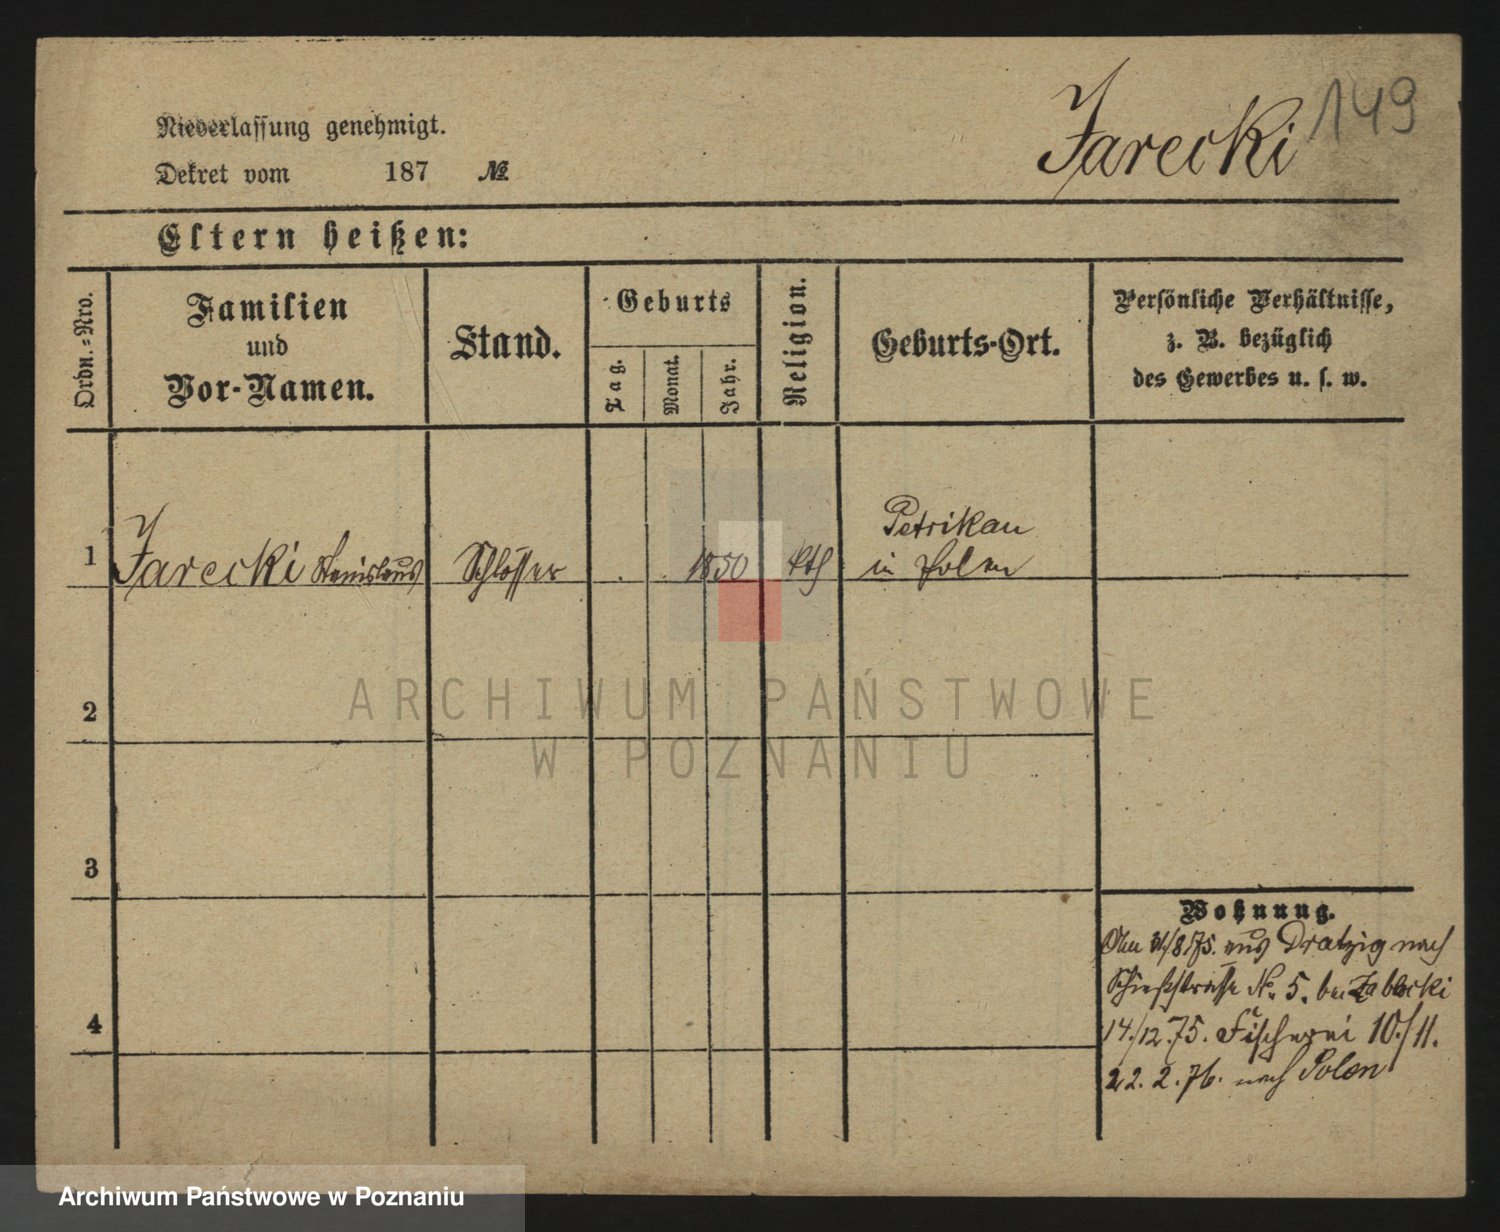 149
Jarecki
Niederlassung genehmigt.
Dekret vom 187 №
Eltern heißen:
Ordn.=Nro.
Familien
und
Vor-Namen.
Stand.
Geburts
Tag.
Monat.
Jahr.
Religion.
Geburts-Ort.
Persönliche Verhältnisse,
z. B. bezüglich
des Gewerbes u. s. w.
1 Jarecki Stanislaus Schlosser 1850 kth Petrikau
in Polen
2
3
4
Wohnung.
/8 75. aus Dratzig nach
Schießstrasse No. 5. bei Zablocki
14./12.75. Fischerei 10./11.
22. 2. 76. nach Polen
ARCHIWUM PAŃSTWOWE
W POZNANIU
Archiwum Państwowe w Poznaniu